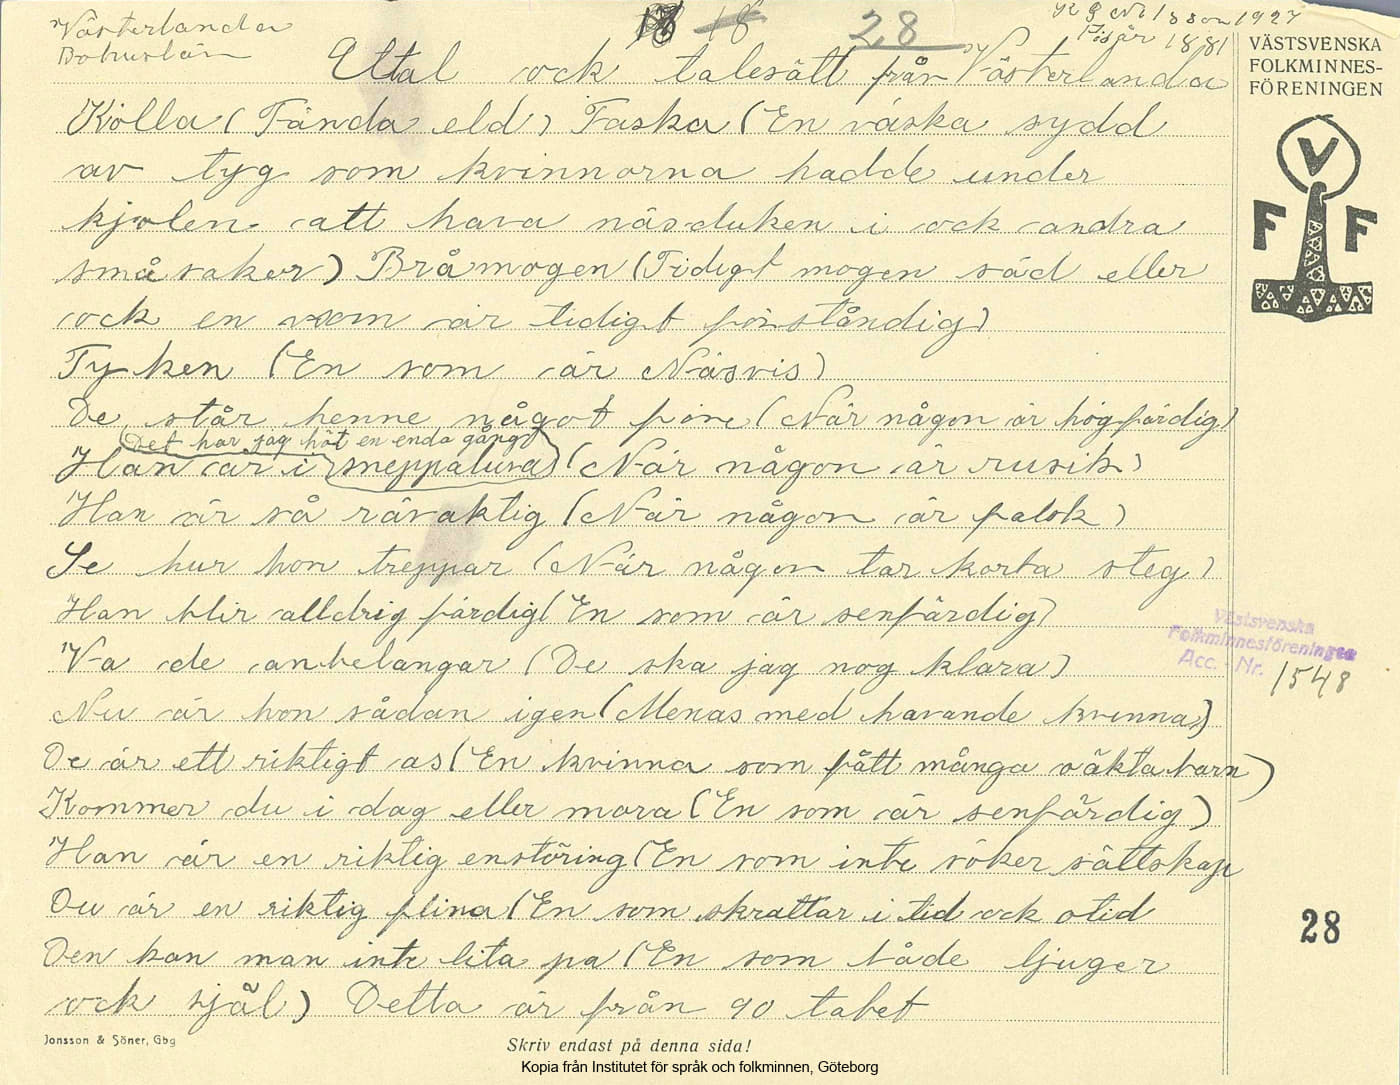 Västerlanda
Bohuslän
18 18 28
1927
Född år 1881
VÄSTSVENSKA
FOLKMINNES-
FÖRENINGEN
V
F F
Eltal ock talesätt från Västerlanda
Kölla (Tända eld) Taska (En väska sydd
av tyg som kvinnorna hadde under
kjolen att hava näsduken i ock andra
småsaker) Bråmogen (Tidigt mogen säd eller
ock en som är tidigt förståndig)
Tyken (En som är Näsvis)
De står henne något före (När någon är högfärdig)
Det har jag hört en enda gång
Han är i sneppalura (När någon är rusik)
Han är så rävaktig (När någon är falsk)
Se hur hon treppar (När någon tar korta steg)
Han blir alldrig färdig (En som är senfärdig)
Va de anbelangar (De ska jag nog klara)
Nu är hon sådan igen (Menas med havande kvinna)
De är ett riktigt as (En kvinna som fått många oäkta barn)
Kommer du i dag eller mora (En som är senfärdig)
Han är en riktig enstöring (En som inte söker sällskap
Du är en riktig flina (En som skrattar i tid ock otid
Den kan man inte lita pa (En som både ljuger
ock själ) Detta är från 90 talet
Västsvenska
Folkminnesföreningen
Acc. Nr. 1548
28
Jonsson & Söner, Gbg
Skriv endast på denna sida!
Kopia från Institutet för språk och folkminnen, Göteborg